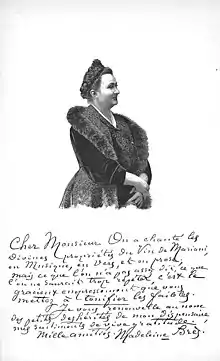 Cher Monsieur On a chanté les
Divines propriétés du Vin de Mariani,
en Musique, en Vers et en prose,
mais ce que l'on n'a pas assez dit, ce que
l'on ne saurait trop répéter c'est le
gracieux empressement que vous
mettez à tonifier les faibles.
Je vous renouvelle au nom
des petits débilités de mon dispensaire
mes sentiments de vive gratitude.
Mille amitiés Madeleine Brès.